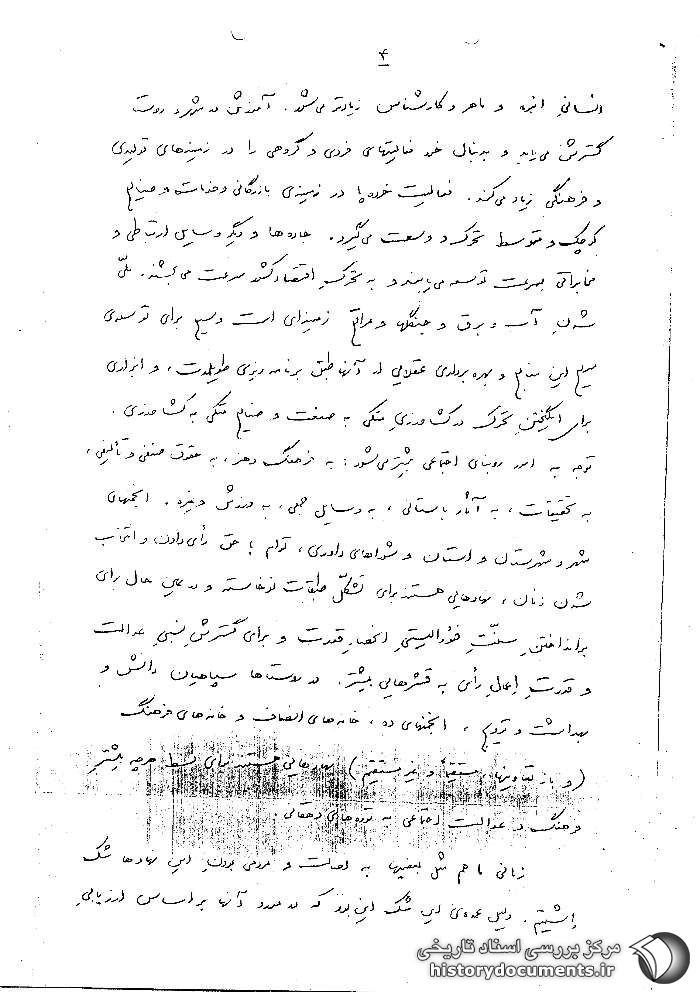 ۴
انسانی انبوه و ماهر و کارشناس زیادتر می‌شود. آموزش در شهر و روستا
گسترش می‌یابد و بدنبال خود فعالیتهای فردی و گروهی را در زمینه‌های تولیدی
و فرهنگی زیاد می‌کند. فعالیت خرده‌پا در زمینه‌ی بازرگانی و خدمات و صنایع
کوچک و متوسط تحرک و وسعت می‌گیرد. جاده‌ها و دیگر وسایل ارتباطی و
مخابراتی بسرعت توسعه می‌یابند و به تحرک اقتصاد کشور سرعت می‌بخشند. ملّی
شدن آب و برق و جنگلها و مراتع زمینه‌ای است وسیع برای توسعه‌ی
سریع این منابع و بهره‌برداری عقلایی از آنها طبق برنامه‌ریزی طویلمدت، و ابزاری
برای انگیختن تحرک در کشاورزی متکی به صنعت و صنایع متکی به کشاورزی.
توجه به امور روبنای اجتماعی بیشتر می‌شود: به فرهنگ و هنر، به حقوق صنفی و تألیفی،
به تحقیقات، به آثار باستانی، به وسایل جمعی، به ورزش و غیره. انجمنهای
شهر و شهرستان و استان و شوراهای داوری، توأم با حق رأی دادن و انتخاب
شدن زنان، نهادهایی هستند برای تشکّل طبقات نوخاسته و در عین حال برای
برانداختن سنّت فئودالیستی انحصار قدرت و برای گسترش نسبی عدالت
و قدرتِ اِعمال رأی به قشرهایی بیشتر. در روستاها سپاهیان دانش و
بهداشت و ترویج، انجمنهای ده، خانه‌های انصاف و خانه‌های فرهنگ
(و باز تعاونیها، مستقیم و غیر مستقیم) نهادهایی هستند برای بسط هرچه بیشتر
فرهنگ و عدالت اجتماعی به توده‌های دهقانی.
زمانی ما هم مثل بعضیها به اصالت و مردمی بودن این نهادها شک
داشتیم. دلیل عمده‌ی این شک این بود که در مورد آنها بر اساس ارزیابی
مرکز بررسی اسناد تاریخی
historydocuments.ir